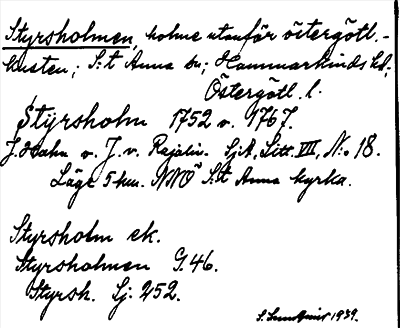 Styrsholmen, holme utanför östergötl.-
kusten; S:t Anna sn; Hammarkinds hd;
Östergötl. l.
Styrsholm 1752 o. 1767.
J. Hahn o. J. v. Rajalin. SjA, Litt. VII, N:o 18.
Läge 5 km. NNÖ S:t Anna kyrka.
Styrsholm ek.
Styrsholmen G. 46.
Styrsh. Sj: 252.
1939.